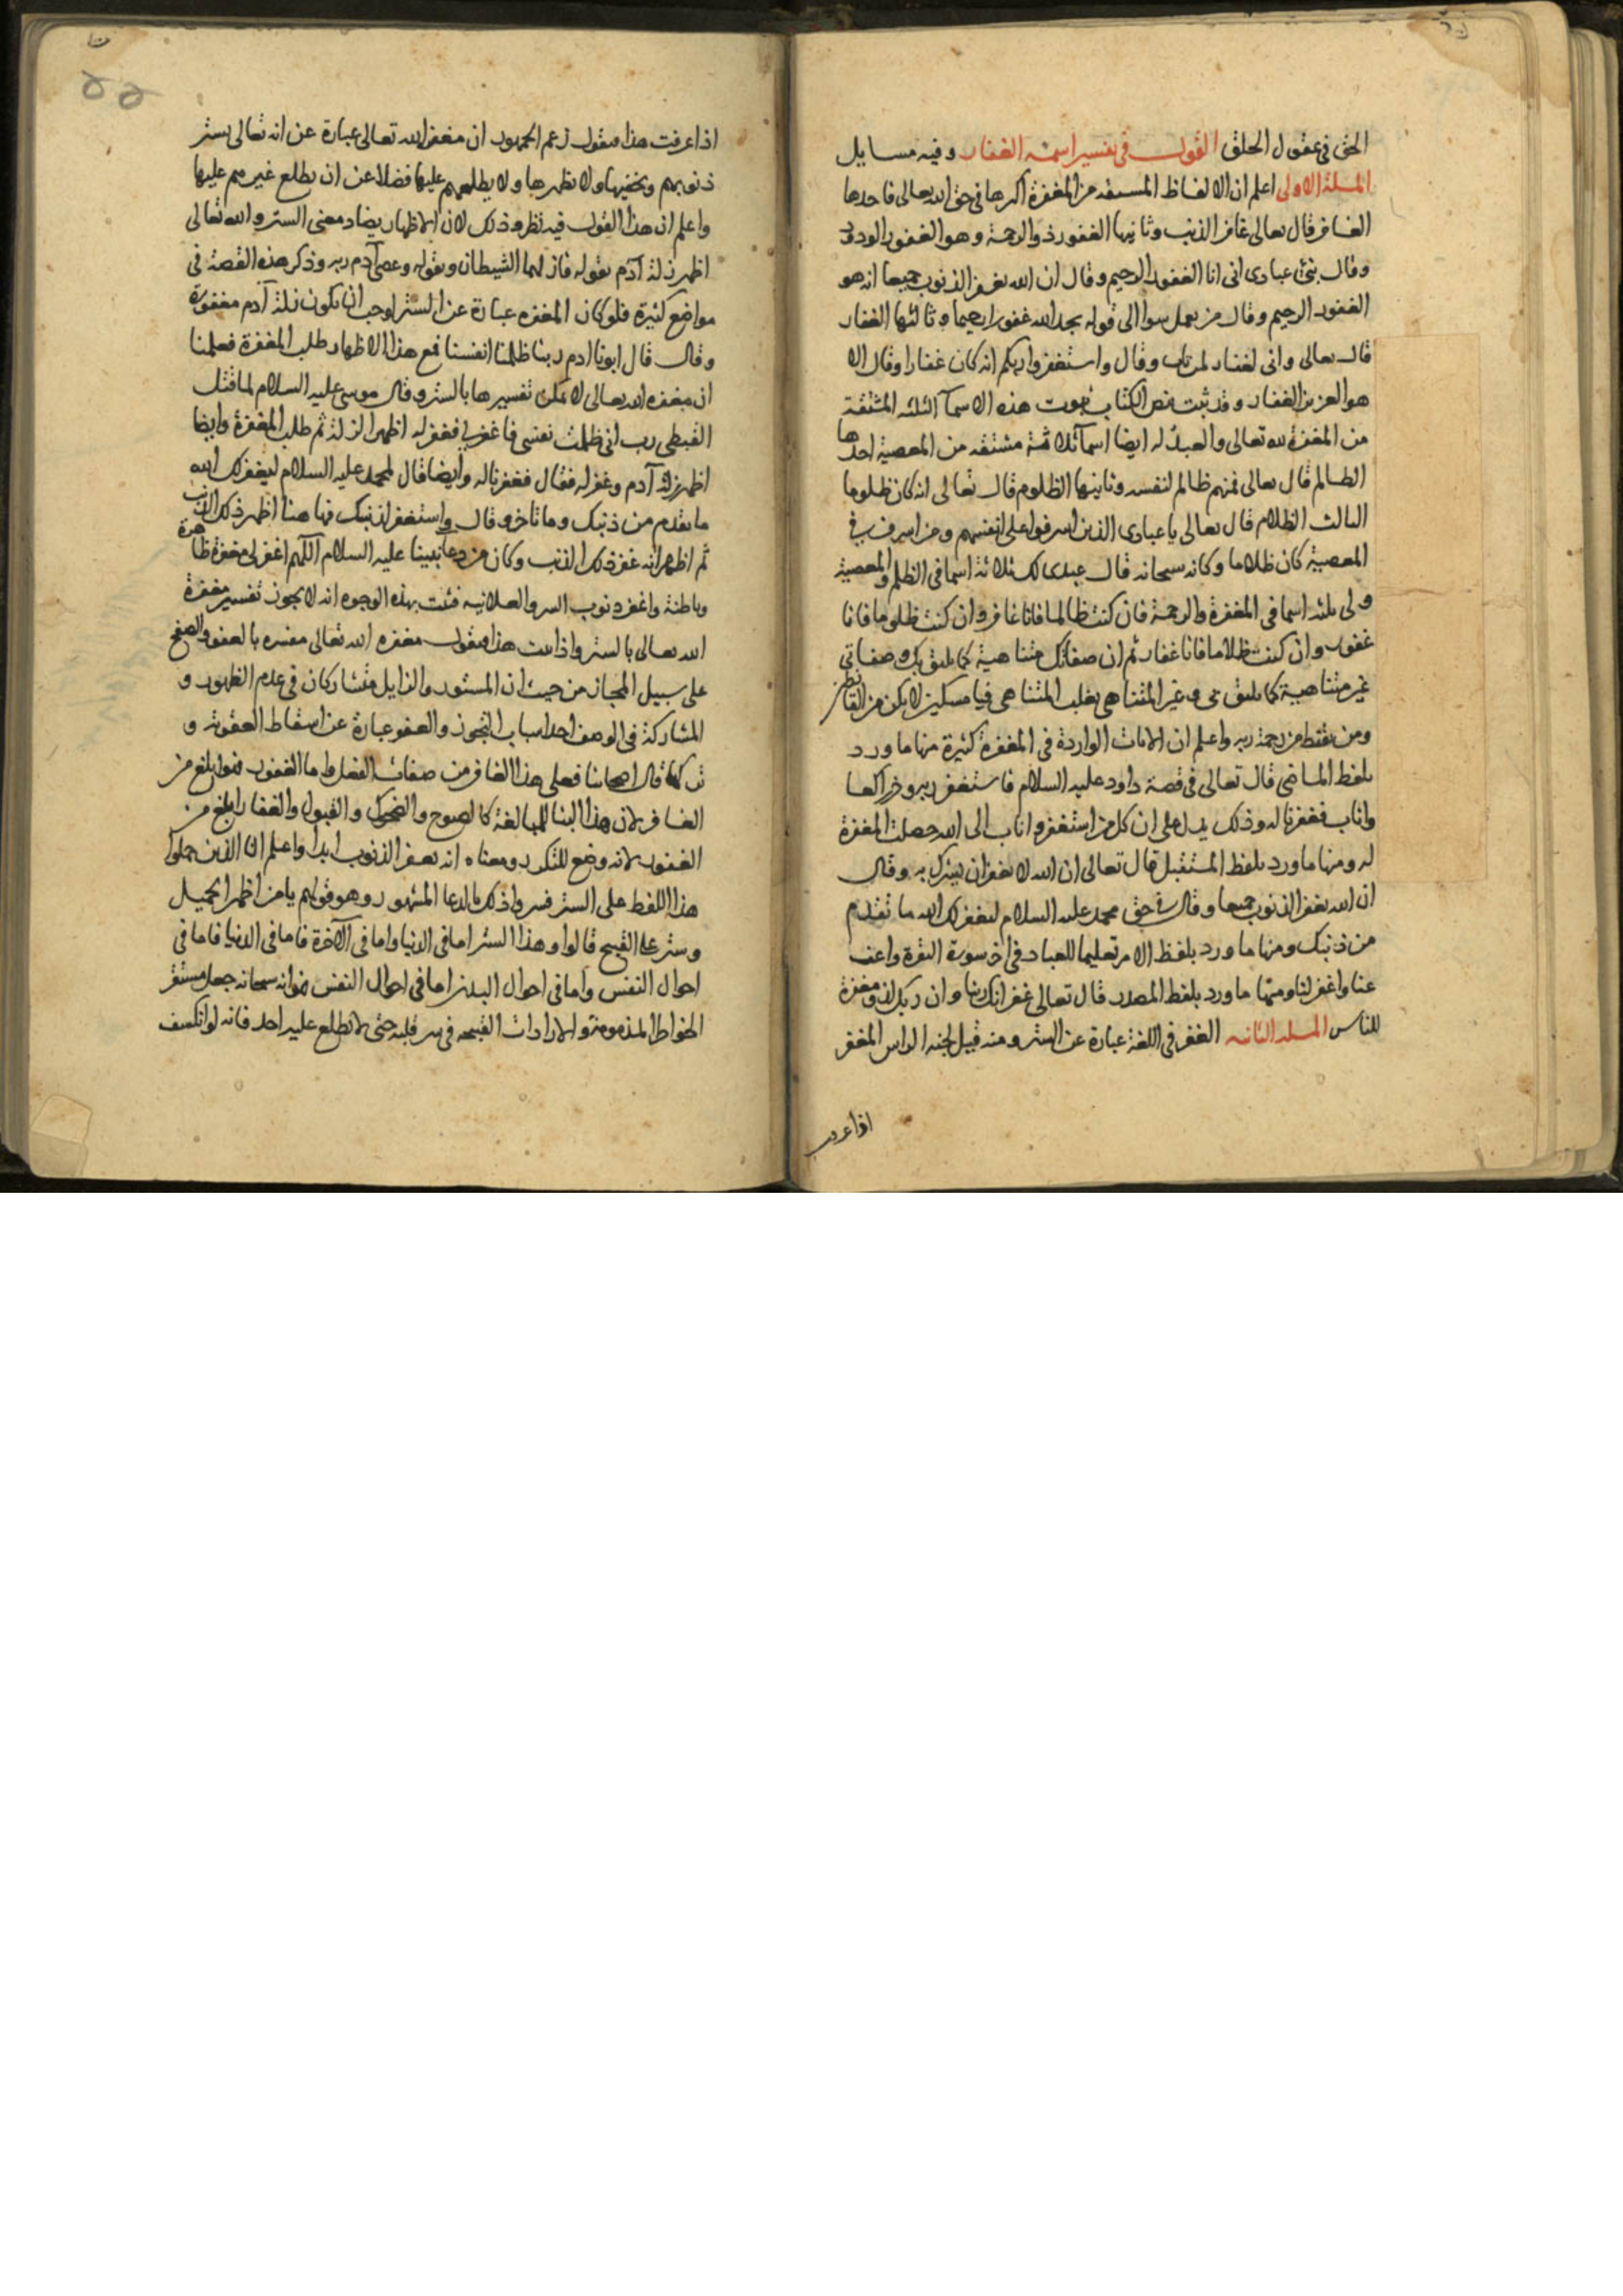 الحق في عقول الخلق القول في تفسير اسمه الغفار وفيه مسايل
المسلة الاولى اعلم ان الالفاظ المستقه من المغفرة اكرها في حق الله تعالى فاحدها
الغافر قال تعالى غافر الذنب وثانيها الغفور ذو الرحمة وهو الغفور الودود
وقال نبئ عبادى انى انا الغفور الرحيم وقال ان الله يغفر الذنوب جميعا انه هو
الغفور الرحيم وقال من يعمل سوا الى قوله يجد الله غفورا رحيما وثالثها الغفار
قال تعالى وانى لغفار لمن تاب وقال واستغفروا ربكم انه كان غفارا وقال الا
هو العزيز الغفار وقد ثبت بنص الكتاب ثبوت هذه الاسمآ الثلثه المشتقة
من المغفرة لله تعالى والعبد له ايضا اسمآ ثلاثة مشتقه من المعصية احدها
الظالم قال تعالى فمنهم ظالم لنفسه وثانيها الظلوم قال تعالى انه كان ظلوما
الثالث الظلام قال تعالى يا عبادى الذين اسرفوا على انفسهم ومن اسرف في
المعصية كان ظلاما وكانه سبحانه قال عبدى لك ثلاثة اسما في الظلم والمعصية
ولى ثلثه اسما في المغفرة والرحمة فان كنت ظالما فانا غافر وان كنت ظلوما فانا
غفور وان كنت ظلاما فانا غفار ثم ان صفاتك متناهية كما يليق بك وصفاتى
غير متناهية كما يليق بى وغير المتناهى يغلب المتناهى فيا مسكين لا يكن من القانطين
ومن يقنط من رحمة ربه واعلم ان الايات الواردة في المغفرة كثيرة منها ما ورد
بلفظ الماضى قال تعالى في قصة داود عليه السلام فاستغفر ربه وخر راكعا
واناب فغفرنا له وذلك يدل على ان كل من استغفر واناب الى الله حصلت المغفرة
له ومنها ما ورد بلفظ المستقبل قال تعالى ان الله لا يغفر ان يشرك به وقال
ان الله يغفر الذنوب جميعا وقال في حق محمد عليه السلام ليغفر لك الله ما تقدم
من ذنبك ومنها ما ورد بلفظ الامر تعليما للعباد في اخر سورة البقرة واعف
عنا واغفر لنا ومنها ما ورد بلفظ المصدر قال تعالى غفرانك ربنا وان ربك لذو مغفرة
للناس المسله الثانيه الغفر في اللغة عبارة عن الستر ومنه قيل لجنه الراس المغفر
اذا عرفت
اذا عرفت هذا فنقول زعم الجمهور ان مغفرة الله تعالى عبارة عن انه تعالى يستر
ذنوبهم ويخفيها ولا يظهرها ولا يطلعهم عليها فضلا عن ان يطلع غيرهم عليها
واعلم ان هذا القول فيه نظر وذلك لان الاظهار يضاد معنى الستر والله تعالى
اظهر زلة آدم بقوله فازلهما الشيطان وبقوله وعصى آدم ربه وذكر هذه القصة في
مواضع كثيرة فلو كان المغفره عبارة عن الستر لوجب ان لا يكون زلة آدم مغفورة
وقال قال ابونا ادم ربنا ظلمنا انفسنا فمع هذا الاظهار طلب المغفرة فعلمنا
ان مغفره الله تعالى لا يمكن تفسيرها بالستر وقال موسى عليه السلام لما قتل
القبطى رب انى ظلمت نفسى فاغفر لي فغفر له اظهر الزلة ثم طلب المغفرة وايضا
اظهر زلة آدم وغفر له فقال فغفرنا له وايضا قال لمحمد عليه السلام ليغفر لك الله
ما تقدم من ذنبك وما تاخر وقال واستغفر لذنبك فها هنا اظهر ذلك الذنب
ثم اظهر انه غفر ذلك الذنب وكان من دعا نبينا عليه السلام اللهم اغفر لى مغفرة ظاهرة
وباطنة واغفر ذنوب السر والعلانيه فثبت بهذه الوجوه انه لا يجوز تفسير مغفرة
الله تعالى بالستر واذا ثبت هذا فنقول مغفره الله تعالى مفسره بالعفو والصفح
على سبيل المجاز من حيث ان المستور والزايل متشاركان في عدم الظهور و
المشاركة في الوصف احد اسباب التجوز والعفو عبارة عن اسقاط العقوبة و
قال اصحابنا فعلى هذا الغافر من صفات الفعل واما الغفور فهو ابلغ من
الغافر لان هذا البنا للمبالغة كالصبوح والضحوك والقبول والغفار ابلغ من
الغفور لانه وضع للتكرر ومعناه انه يغفر الذنوب ابدا واعلم ان الذين حملوا
هذا اللفظ على الستر فسروا ذلك بالدعا المشهور وهو قولهم يا من اظهر الجميل
وستر على القبيح قالوا وهذا الستر اما في الدنيا واما في الآخرة فاما في الدنيا فاما في
احوال النفس واما في احوال البدن اما في احوال النفس فهو انه سبحانه جعل مستقر
الخواطر المذمومة والارادات القبيحه في سر قلبه حتى لا يطلع عليه احد فانه لو انكسف